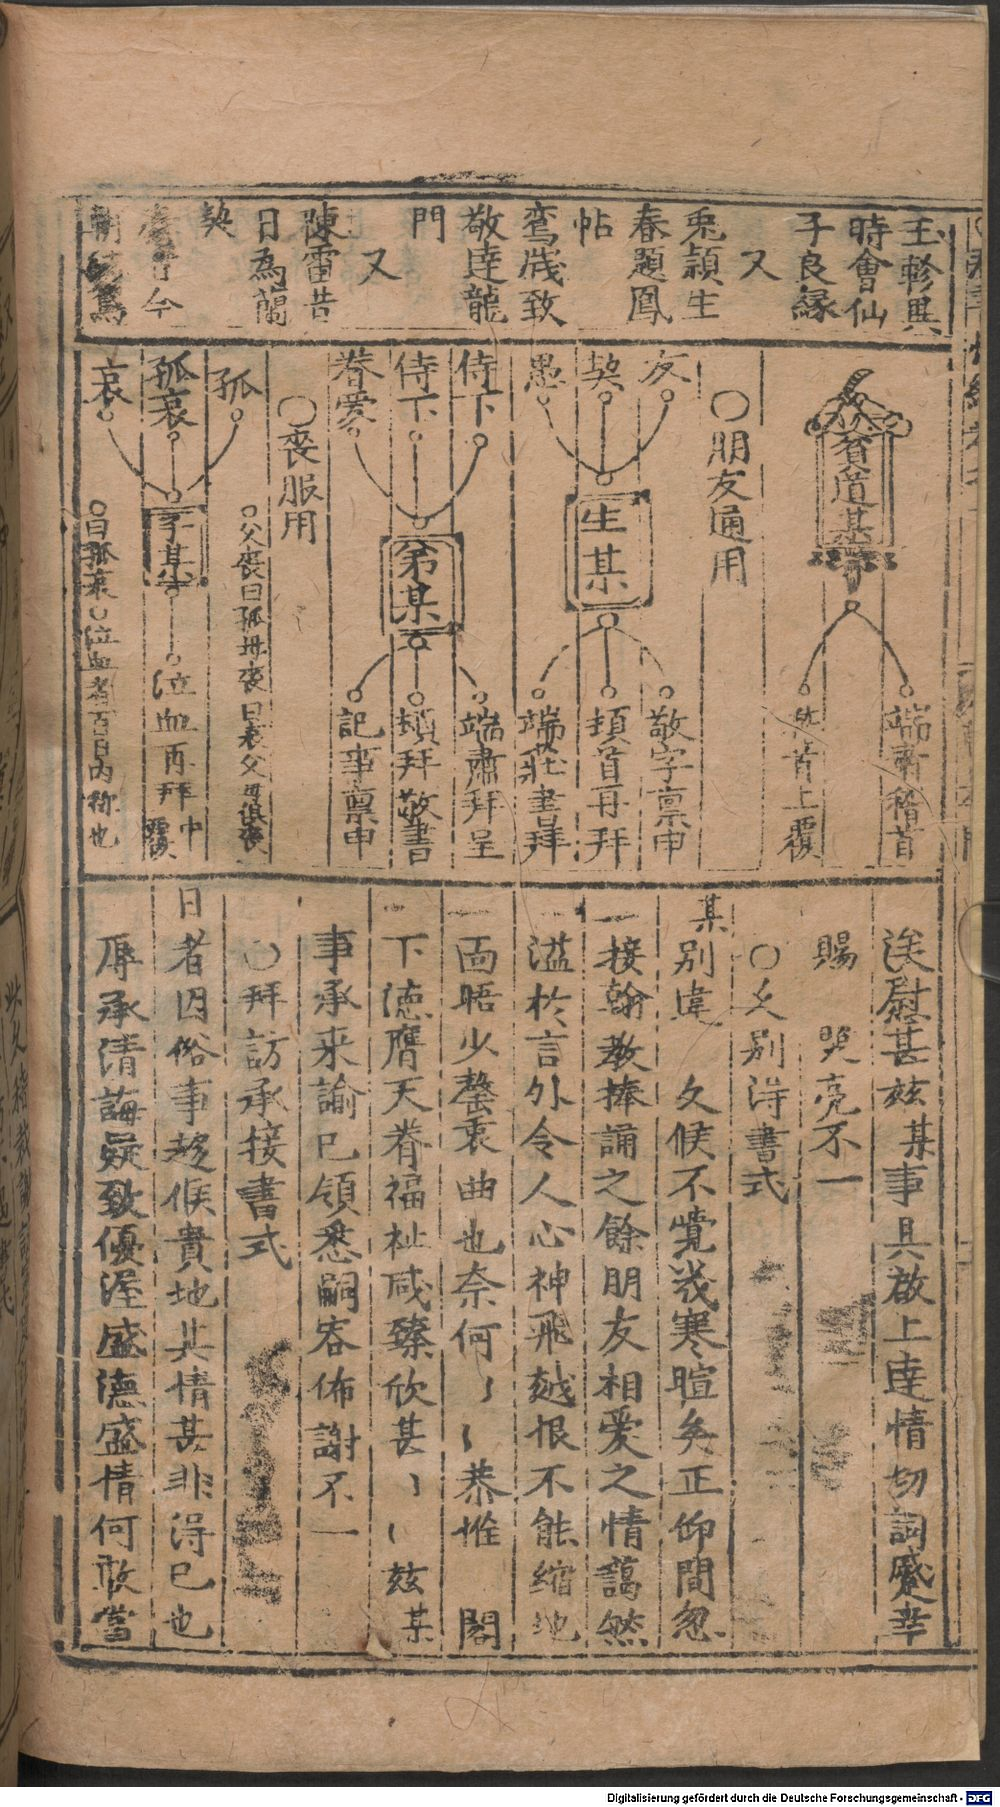 玉軫異
時會仙
子良緣
又
兎頴生
春題鳳
帖
鸞牋致
敬達龍
門
又
陳雷昔
日為蘭
契
今
貧道某
端肅稽首
首上覆
○朋友通用
友
契
愚
生某
敬字禀申
頓首再拜
端莊書拜
侍下
侍下
眷愛
弟某
端肅拜呈
頓拜敬書
記事禀申
○喪服用
○父喪曰孤母喪曰哀父母俱喪
孤
孤哀
哀
子某
泣血再拜
申
覆
○曰孤哀○泣血者百日內称也
渎慰甚玆某事具啟上達情切詞蹙幸
賜 㷡亮不一
○久別得書式
某別違 久候不覺幾寒暄矣正仰間忽
一接翰教捧誦之餘朋友相愛之情藹然
一溢於言外令人心神飛越恨不能縮地
一面晤少罄衷曲也奈何〻〻恭惟 閣
一下德膺天眷福祉咸臻欣甚〻〻玆某
事承来諭已領悉嗣容佈謝不一
○拜訪承接書式
日者因俗事趍候貴地其情甚非得已也
辱承清誨疑致優渥盛德盛情何敢當
Digitalisierung gefördert durch die Deutsche Forschungsgemeinschaft - DFG